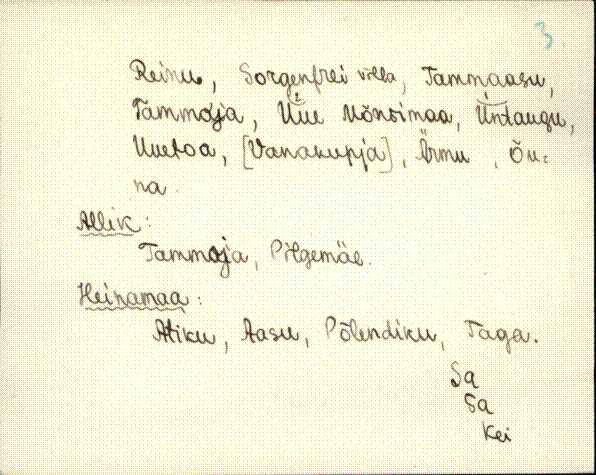 3.
Reinu, Sorgenfrei villa, Tammaasu,
Tammoja, Uue Mõnsimaa, Üntaugu,
Uuetoa, [Vanakupja], Ärmu, Õu-
na.
Allik:
Tammoja, Pilgemäe.
Heinamaa:
Atiku, Aasu, Põlendiku, Taga.
Sa
Sa
Kei